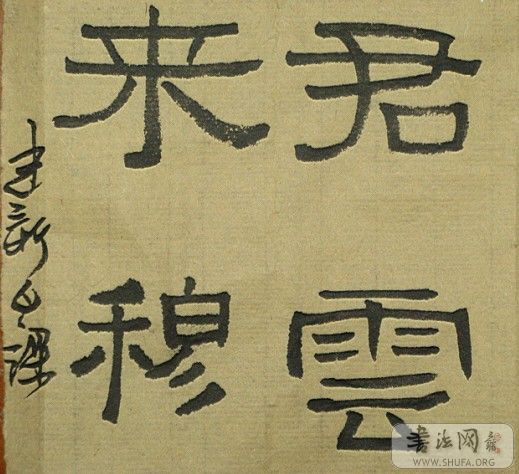 君雲
来穆
建新課
書法网
WWW.SHUFA.ORG